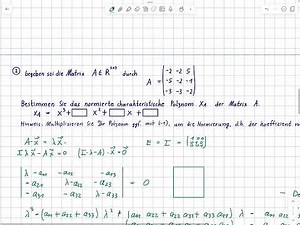 ① Gegeben sei die Matrix A ∈ R³ˣ³ durch A = (-2 -2 5
-5 -2 -1
-3 -3 -2)
Bestimmen Sie das normierte charakteristische Polynom X_A der Matrix A.
X_A = X³ + □ X² + □ X + □
Hinweis: Multiplizieren Sie Ihr Polynom ggf. mit (-1), um die Normierung, d.h. der Koeffizient
A·x⃗ = λx⃗ E = I =
Iλx⃗ - Ax⃗ = 0 (I·λ-A)·x⃗ = 0
λ - a₁₁ - a₁₂ - a₁₃
- a₂₁ λ - a₂₂ - a₂₃ = 0
- a₃₁ - a₃₂ λ - a₃₃
λ³ - (a₁₁ + a₂₂ + a₃₃) λ² +